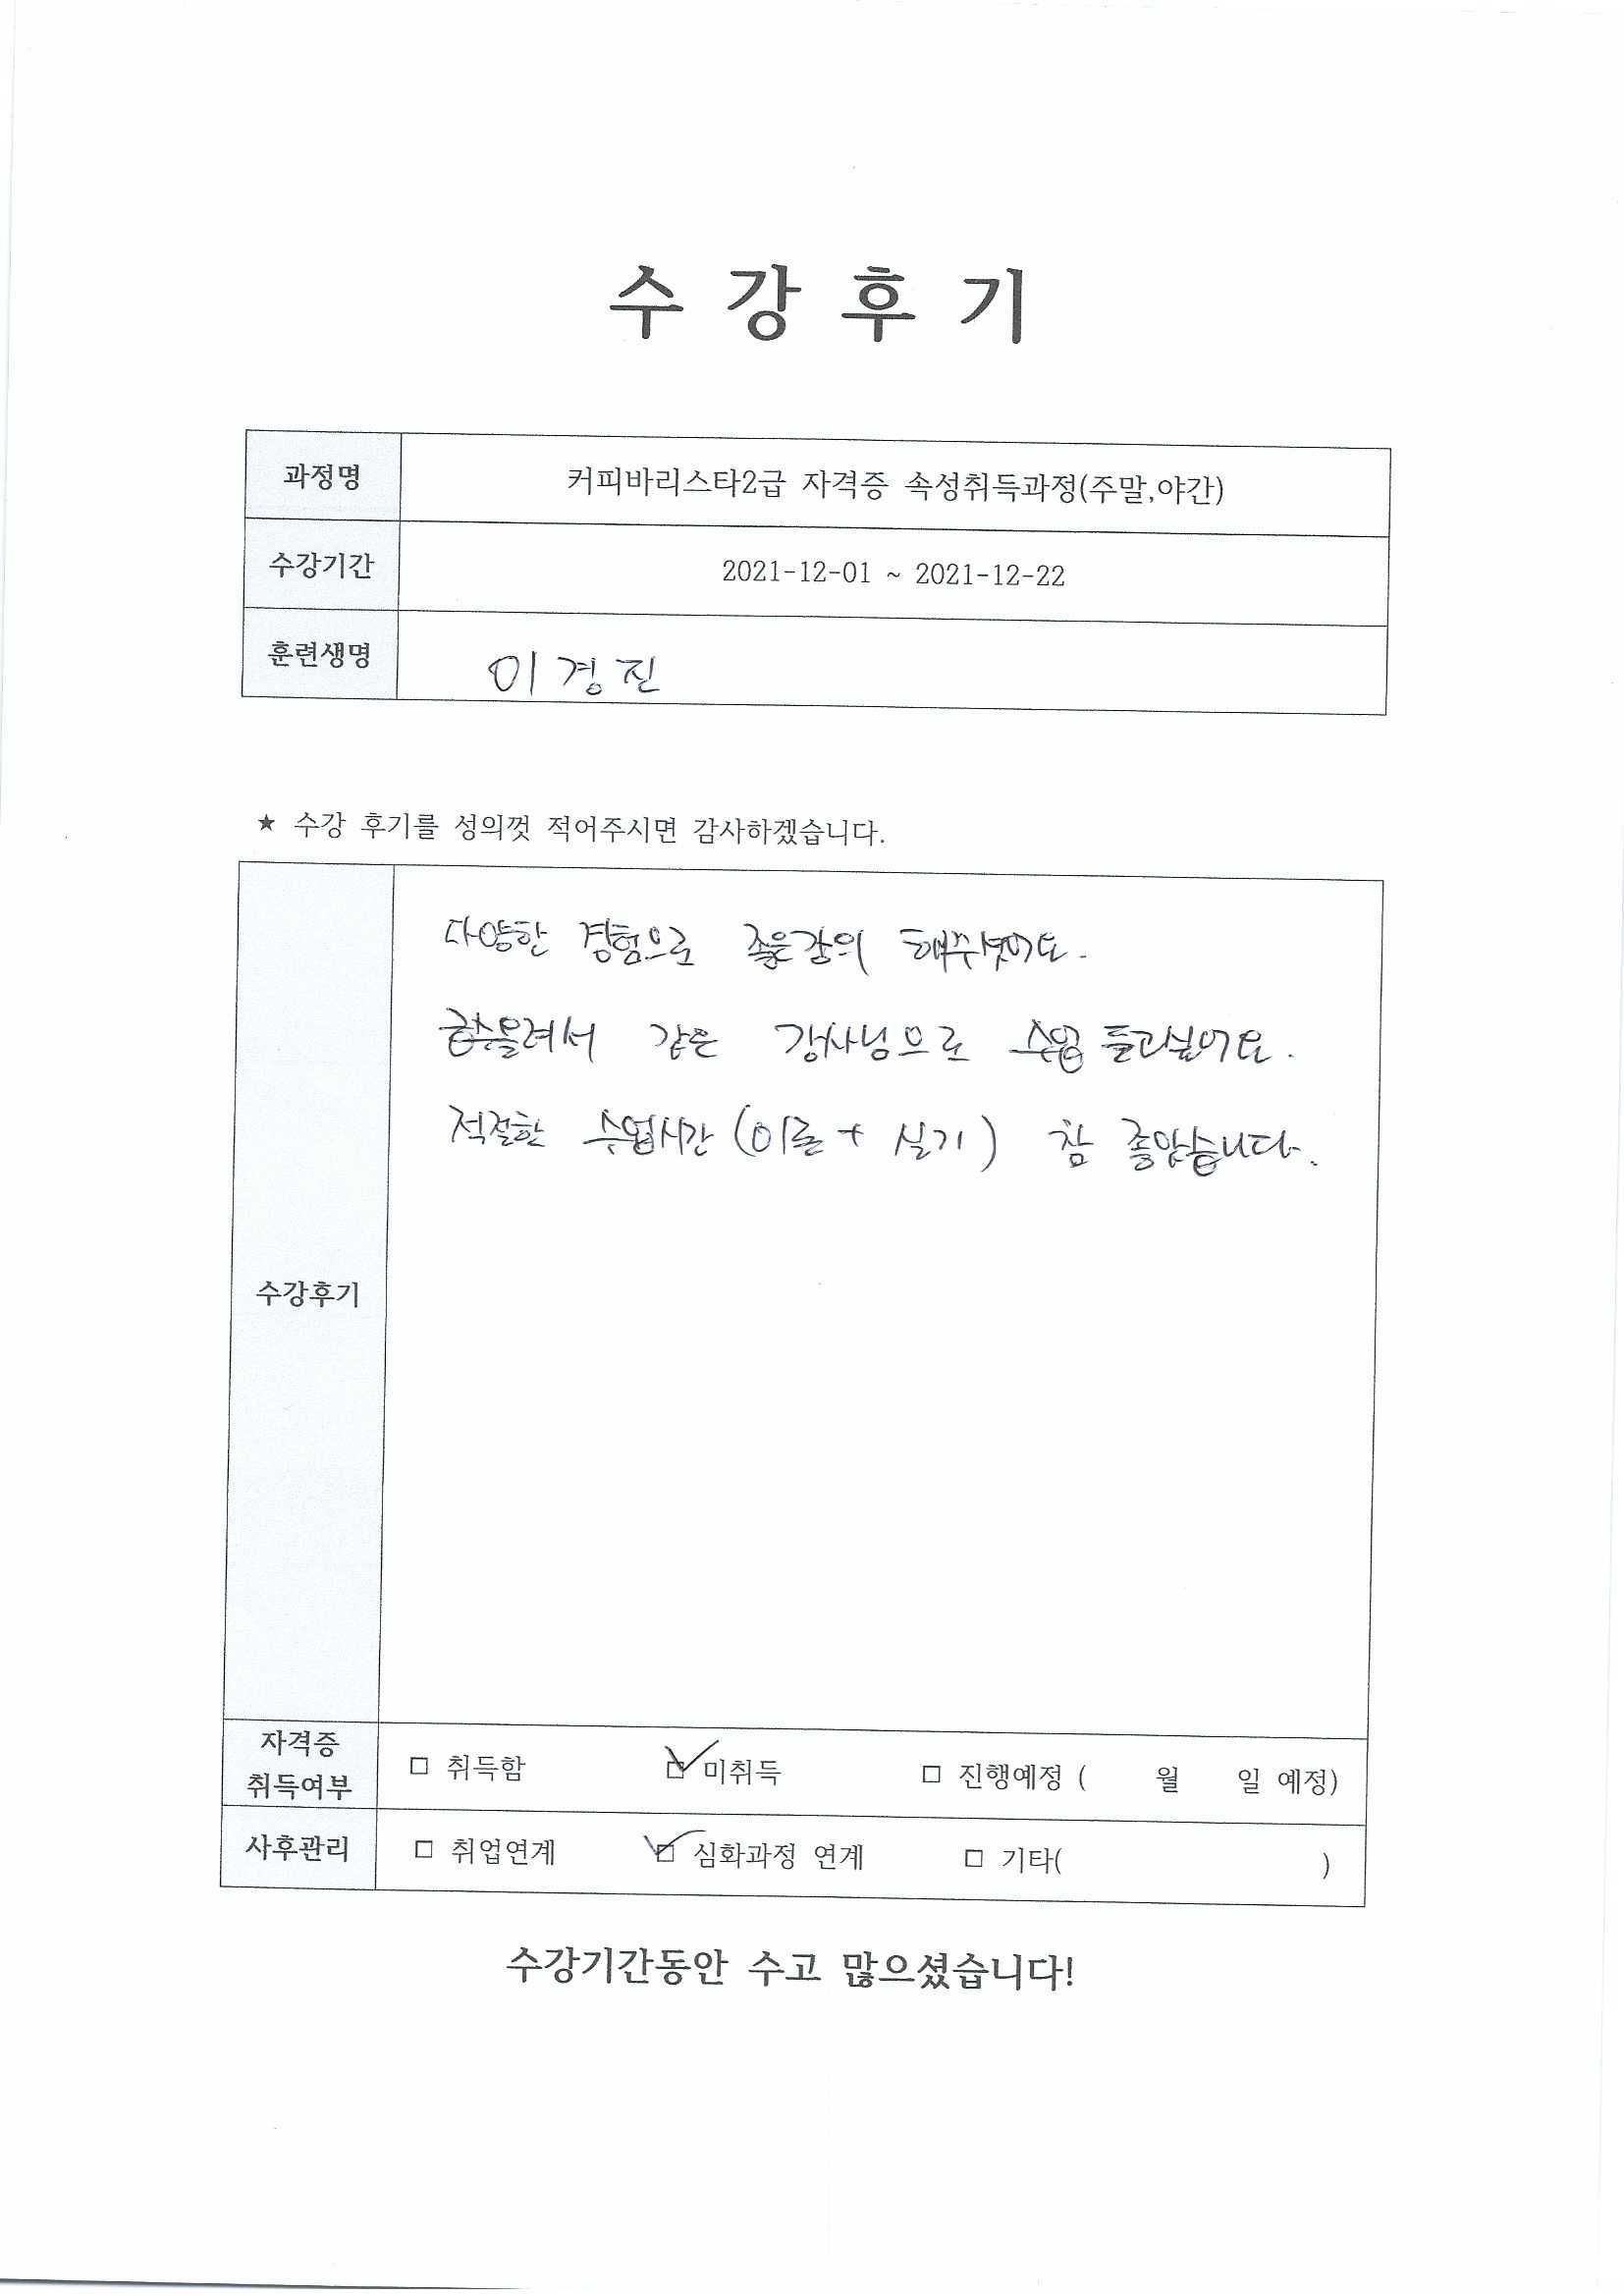 수 강 후 기
과정명 커피바리스타2급 자격증 속성취득과정(주말,야간)
수강기간 2021-12-01 ~ 2021-12-22
훈련생명 이경진
★ 수강 후기를 성의껏 적어주시면 감사하겠습니다.
수강후기
다양한 경험으로 좋은강의 해주셧어요.
급수올려서 같은 강사님으로 수업 듣고싶어요.
적절한 수업시간 (이론 + 실기) 참 좋았습니다.
자격증 취득여부 □ 취득함 ☑ 미취득 □ 진행예정 ( 월 일 예정)
사후관리 □ 취업연계 ☑ 심화과정 연계 □ 기타( )
수강기간동안 수고 많으셨습니다!